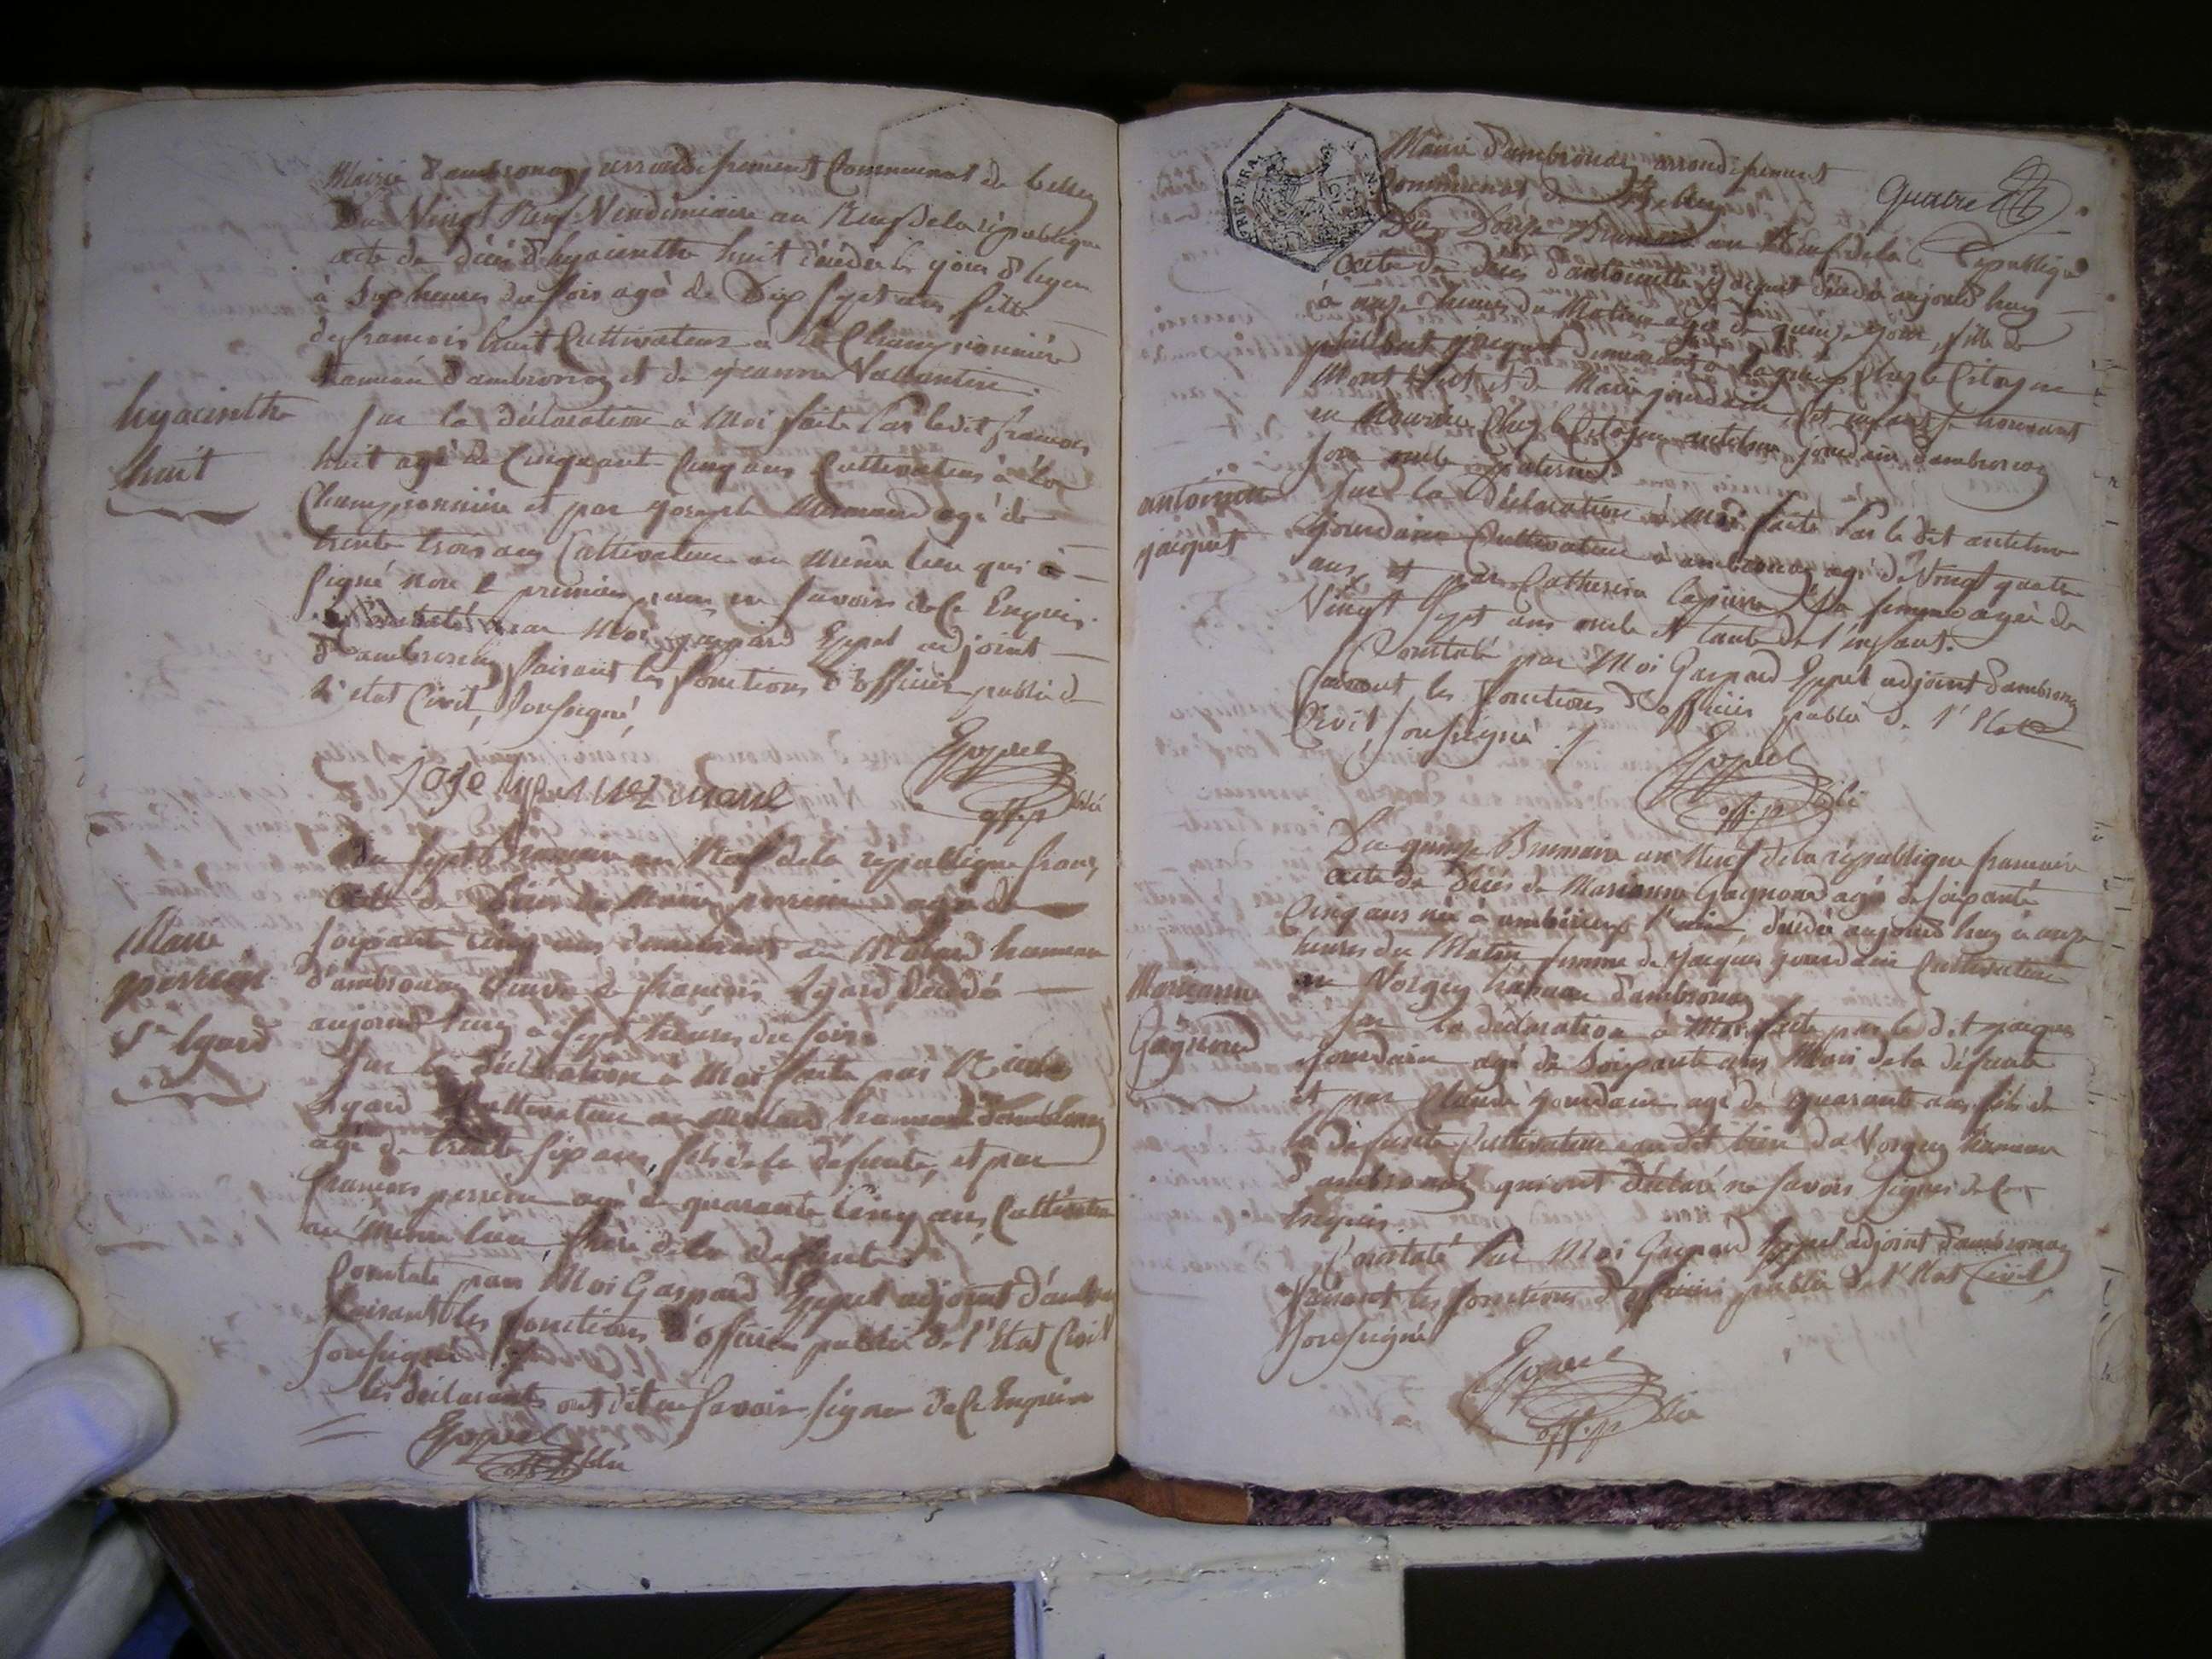 Mairie d'ambronay arrondissement Communal de belley
Du Vingt Neuf Vendemiaire an Neuf de la république
acte de décès d'hyacinthe huit décédé le jour d'hyer
à six heures du soir agé de Dix Sept ans fils
de francois huit Cultivateur à la Championnière
hameau d'ambronay et de jeanne Vallantin.
hyacinthe
huit
Sur la déclaration à Moi faite Par ledit francois
huit agé de Cinquante Cinq ans Cultivateur à la
Championnière et par joseph agé de
trente trois ans Cultivateur au Même lieu qui a
signé non le premier pour ne savoir de ce Enquis.
Constaté par Moi gaspard Eppel adjoint
d'ambronay faisant les fonctions d'officier public de
l'état Civil, Soussigné,
Eppel
off. p blic
du Sept brumaire an Neuf de la république franç
acte de Décès de Marie perrin agée de
soixante cinq ans demeurant au Molard hameau
d'ambronay Veuve de francois Lyard Décédée
aujourd'huy à sept heures du soir.
Marie
perrin
Ve lyard
Sur la déclaration à Moi faite par
Lyard Cultivateur au Molard hameau d'ambronay
agé de trente six ans, fils de la défunte, et par
francois perrin agé de quarante Cinq ans Cultivateur
au même lieu, frère de la deffunte.
Constaté par Moi Gaspard Eppel adjoint d'ambro
faisant les fonctions d'officier public de l'Etat Civil
soussigné
les déclarants ont dit ne savoir signer de ce Enquis
Eppel
off. p blic
Quatre
Mairie d'ambronay arrondissement
Communal de Belley
Du Douze Brumaire an Neuf de la République
acte de décès d'antoinette jacquet décédée aujourd'huy
à onze heures du Matin agée de quinze jours, fille de
philibert jacquet demeurant à chez le Citoyen
et de Marie jourdain, cet enfant se trouvant
en Nourrice Chez le Citoyen antelme jourdain d'ambronay
son oncle maternel.
antoinette
jacquet
Sur la Déclaration à Moi faite Par le dit antelme
Jourdain Cultivateur à ambronay agé de Vingt quatre
ans, et par Catherine lapierre Sa femme agée de
Vingt Sept ans oncle et tante de l'enfant.
Constaté par Moi Gaspard Eppel adjoint d'ambronay
faisant les fonctions d'officier public de l'Etat
Civil, soussigné
Eppel
off. p blic
Du quinze Brumaire an Neuf de la république francaise
acte de décès de Marianne Gagnoud agée de soixante
Cinq ans née à ambérieux l'ain, décédée aujourd'huy à onze
heures du Matin femme de Jacques jourdain Cultivateur
au Vorgey hameau d'ambronay
Marianne
Gagnoud
Sur la déclaration à Moi faite par le dit jacques
jourdain agé de Soixante ans Mari de la défunte
et par Claude jourdain agé de quarante ans fils de
la défunte Cultivateur au dit lieu de Vorgey hameau
d'ambronay qui ont déclaré ne savoir signer de ce
Enquis.
Constaté Par Moi Gaspard Eppel adjoint d'ambronay
faisant les fonctions d'officier public de l'Etat Civil
soussigné
Eppel
off. p blic